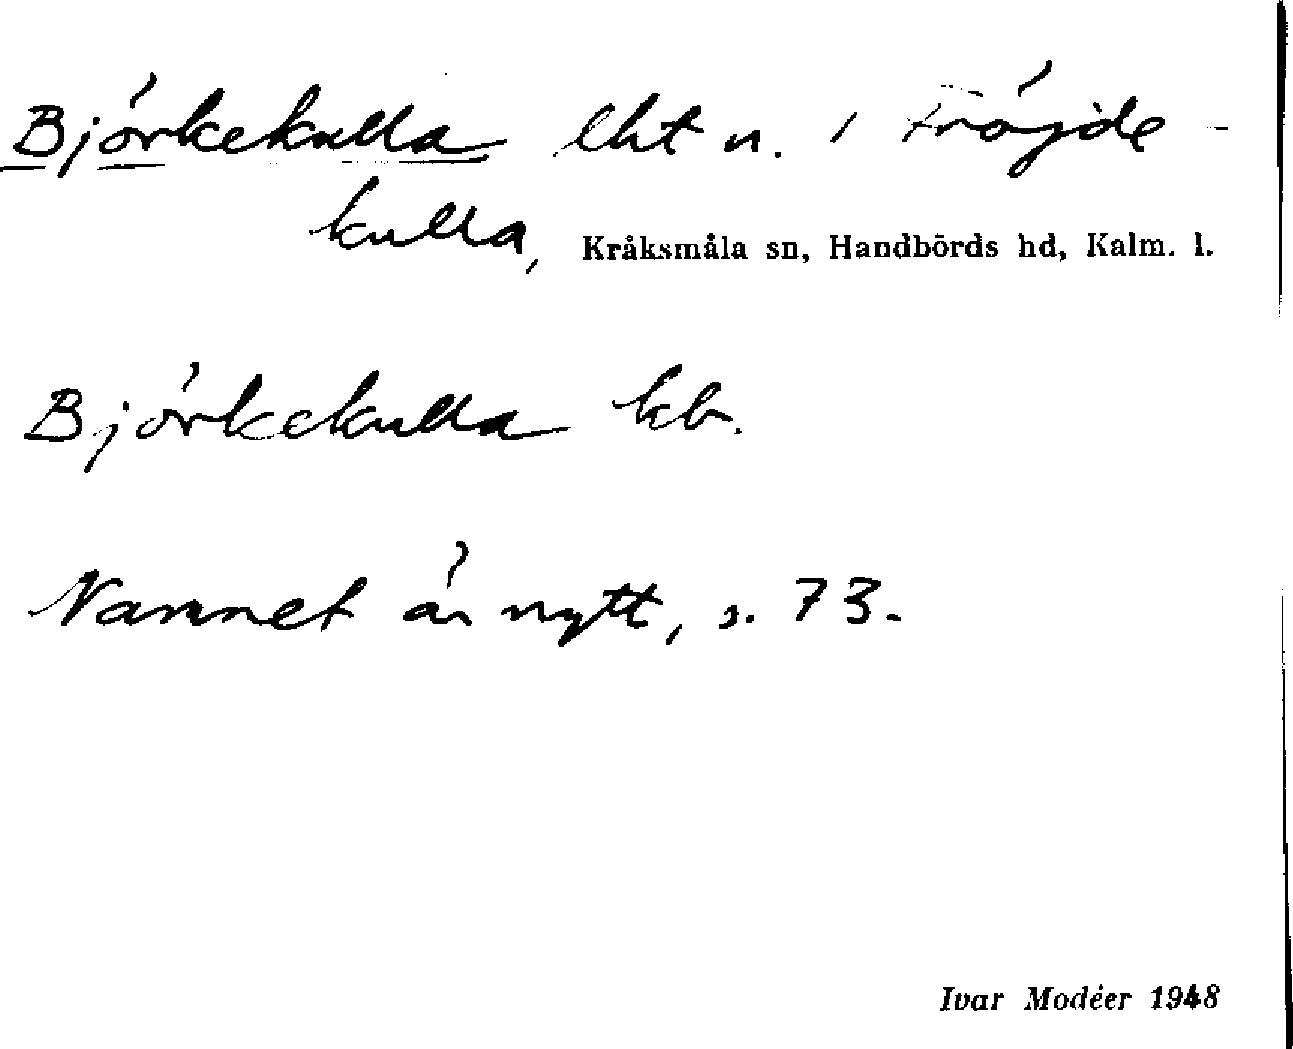 Björkekulla lht n. i Fröjde-
kulla, Kråksmåla sn, Handbörds hd, Kalm. l.
Björkekulla kb.
Namnet är nytt, s. 73.
Ivar Modéer 1948